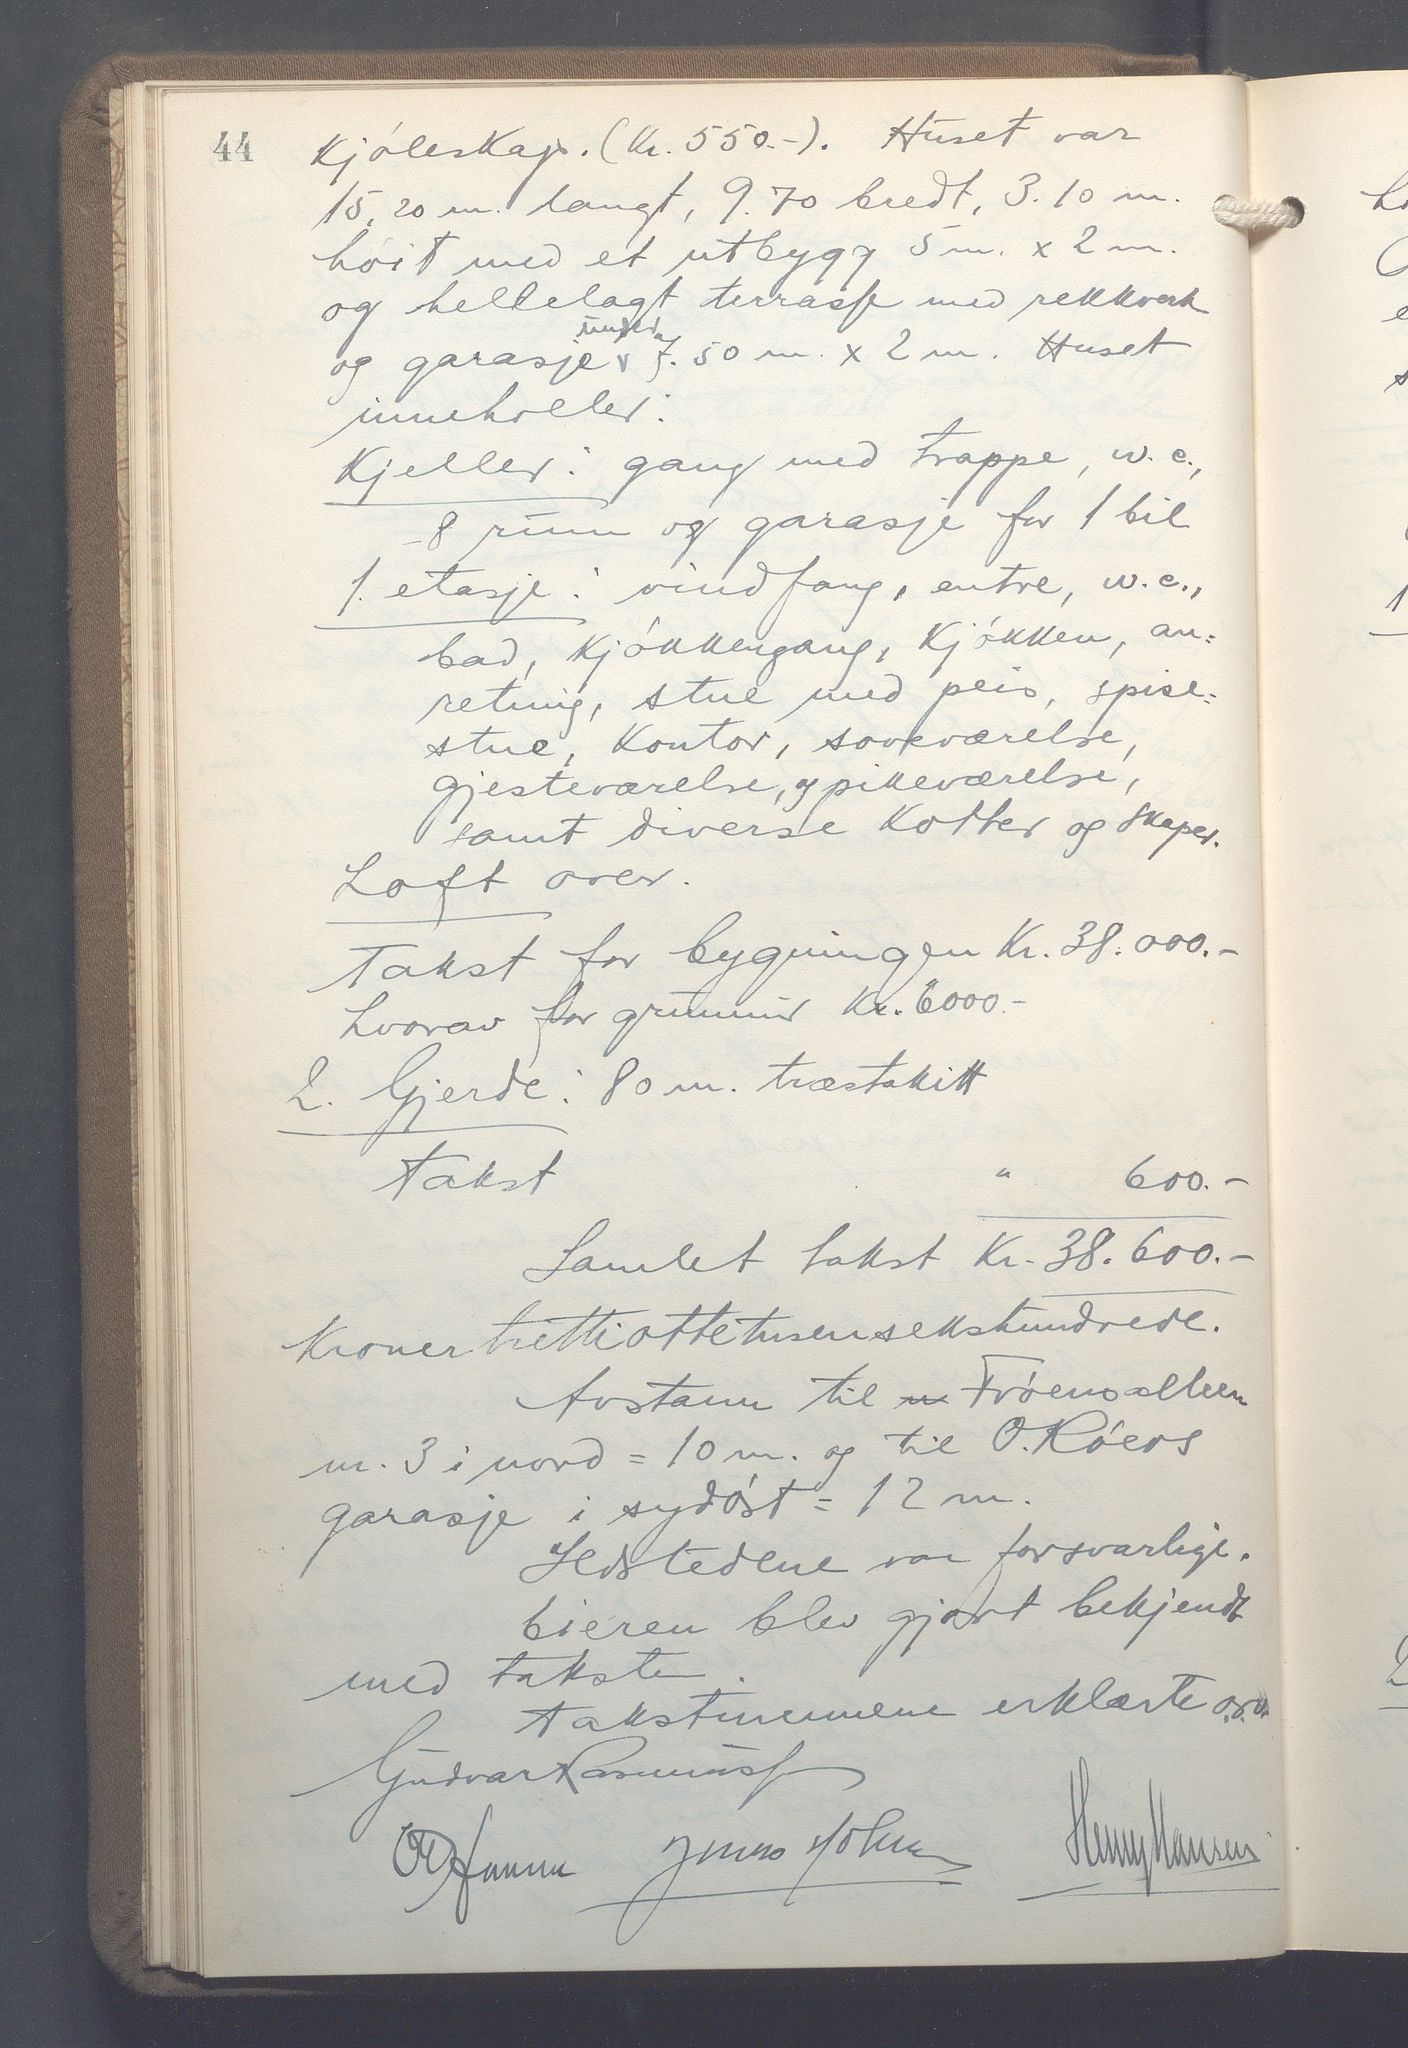 44
Kjóleskap. (Kr. 550.-). Huset var
15,20 m. langt, 9.70 bredt, 3.10 m.
hóit med et utbygg 5 m. x 2 m.
og hellelagt terrasse med rekkverk
under
og garasje v 7.50 m. x 2 m. Huset
inneholder:
Kjeller: gang med trappe, w.c.,
8 rum og garasje for 1 bil
1. etasje: vindfang, entre, w.c.,
bad, kjókkengang, kjókken, an=
retning, stue med peis, spise=
stue, kontor, soveværelse,
gjesteværelse, og pikeværelse,
samt diverse kotter og skaper.
Loft over.
Takst for bygningen Kr. 38.000.-
hvorav for grunmur Kr. 6000.-
2. Gjerde: 80 m. træstakitt
Takst " 600.-
Samlet takst Kr. 38.600.-
Kroner trettiottetusensekshundrede.
Avstann til Fróensalleen
nr. 3 i nord = 10 m. og til O. Róers
garasje i sydóst = 12 m.
Ildstedene var forsvarlige.
Eieren blev gjort bekjendt
med taksten.
Takstmennene erklærte o.s.v.
Gudvar Rasmussen
Jens Holm
Henry Hansen